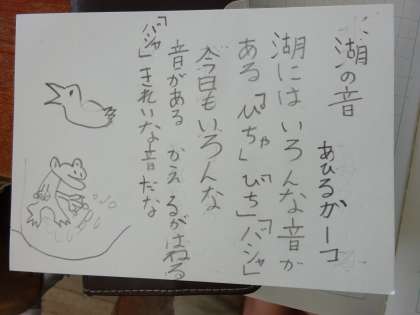 湖の音
あひるかーコ
湖にはいろんな音が
ある「ぴちゃ」「ぴち」「バシャ」
今日もいろんな
音がある かえるがはねる
「バシャ」きれいな音だな